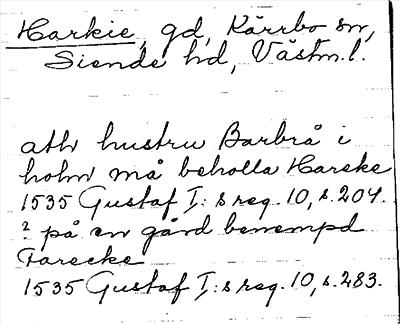 Harkie, gd, Kärrbo sn,
Siende hd, Västm.l.
ath hustru Barbrå i
holm må beholla Hareke
1535 Gustaf I:s reg. 10, s. 204.
? på en gård benempd
Farecke
1535 Gustaf I:s reg. 10, s. 283.